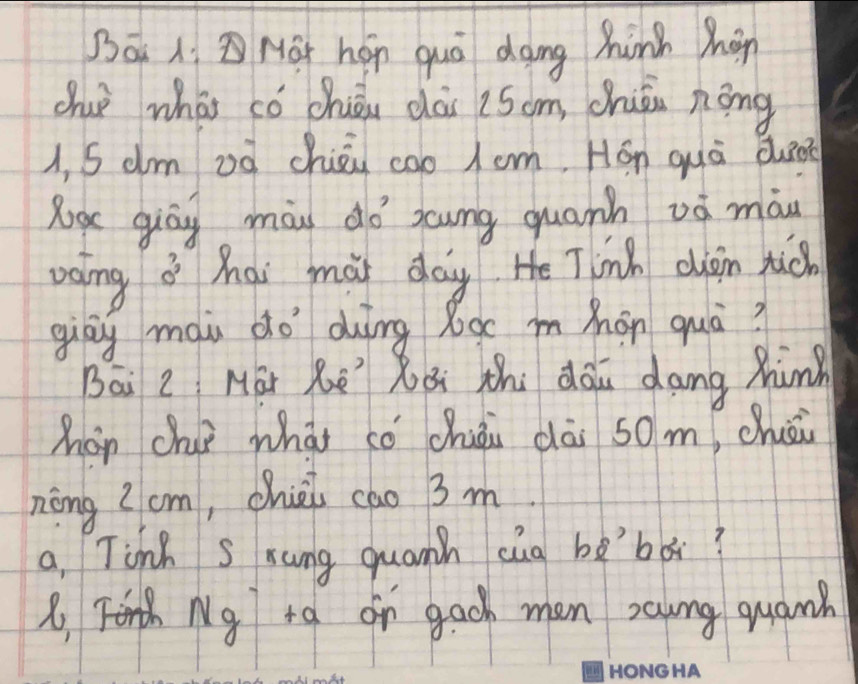 Bài 1: 1) Một hộp quà dạng hình hộp
chữ nhật có chiều dài 25cm, chiều rộng
1,5 dm và chiều cao 1cm. Hộp quà được
bọc giấy màu đỏ xung quanh và màu
vàng ở hai mặt đáy. Tính diện tích
giấy màu đỏ dùng bọc hộp quà?
Bài 2: Một bể bơi thi đấu dạng hình
hộp chữ nhật có chiều dài 50m, chiều
rộng 2 cm, chiều cao 3 m.
a, Tính S xung quanh của bể bơi?
b, Ng ta ốp gạch men xung quanh
HONG HA